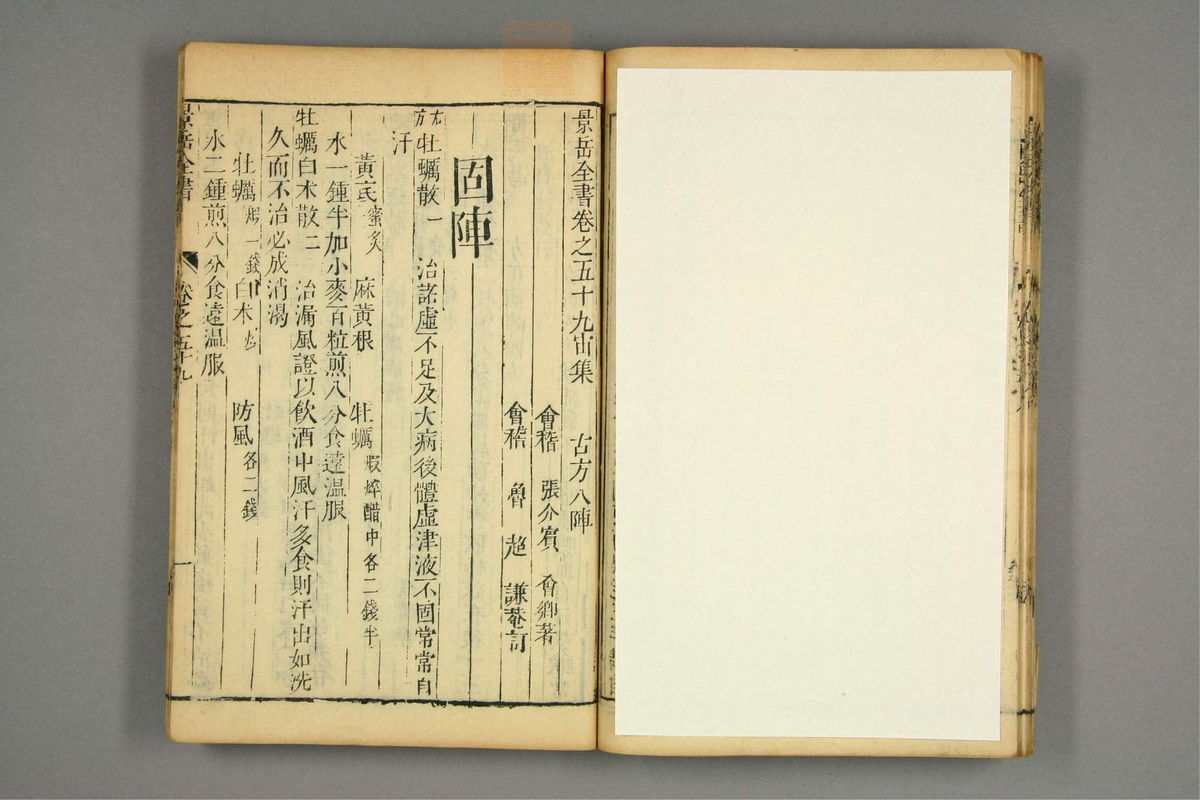 景岳全書卷之五十九宙集 古方八陣
會稽 張介賓 會卿著
會稽 魯 超 謙菴訂
固陣
古方 牡蠣散一 治諸虛不足及大病後體虛津液不固常常自
汗
黃芪蜜炙 麻黃根 牡蠣煆淬醋中各二錢半
水一鍾半加小麥百粒煎八分食遠溫服
牡蠣白朮散二 治漏風證以飲酒中風汗多食則汗出如洗
久而不治必成消渴
牡蠣煆一錢 白朮炒 防風各二錢
水二鍾煎八分食遠溫服
景岳全書 卷之五十九 一